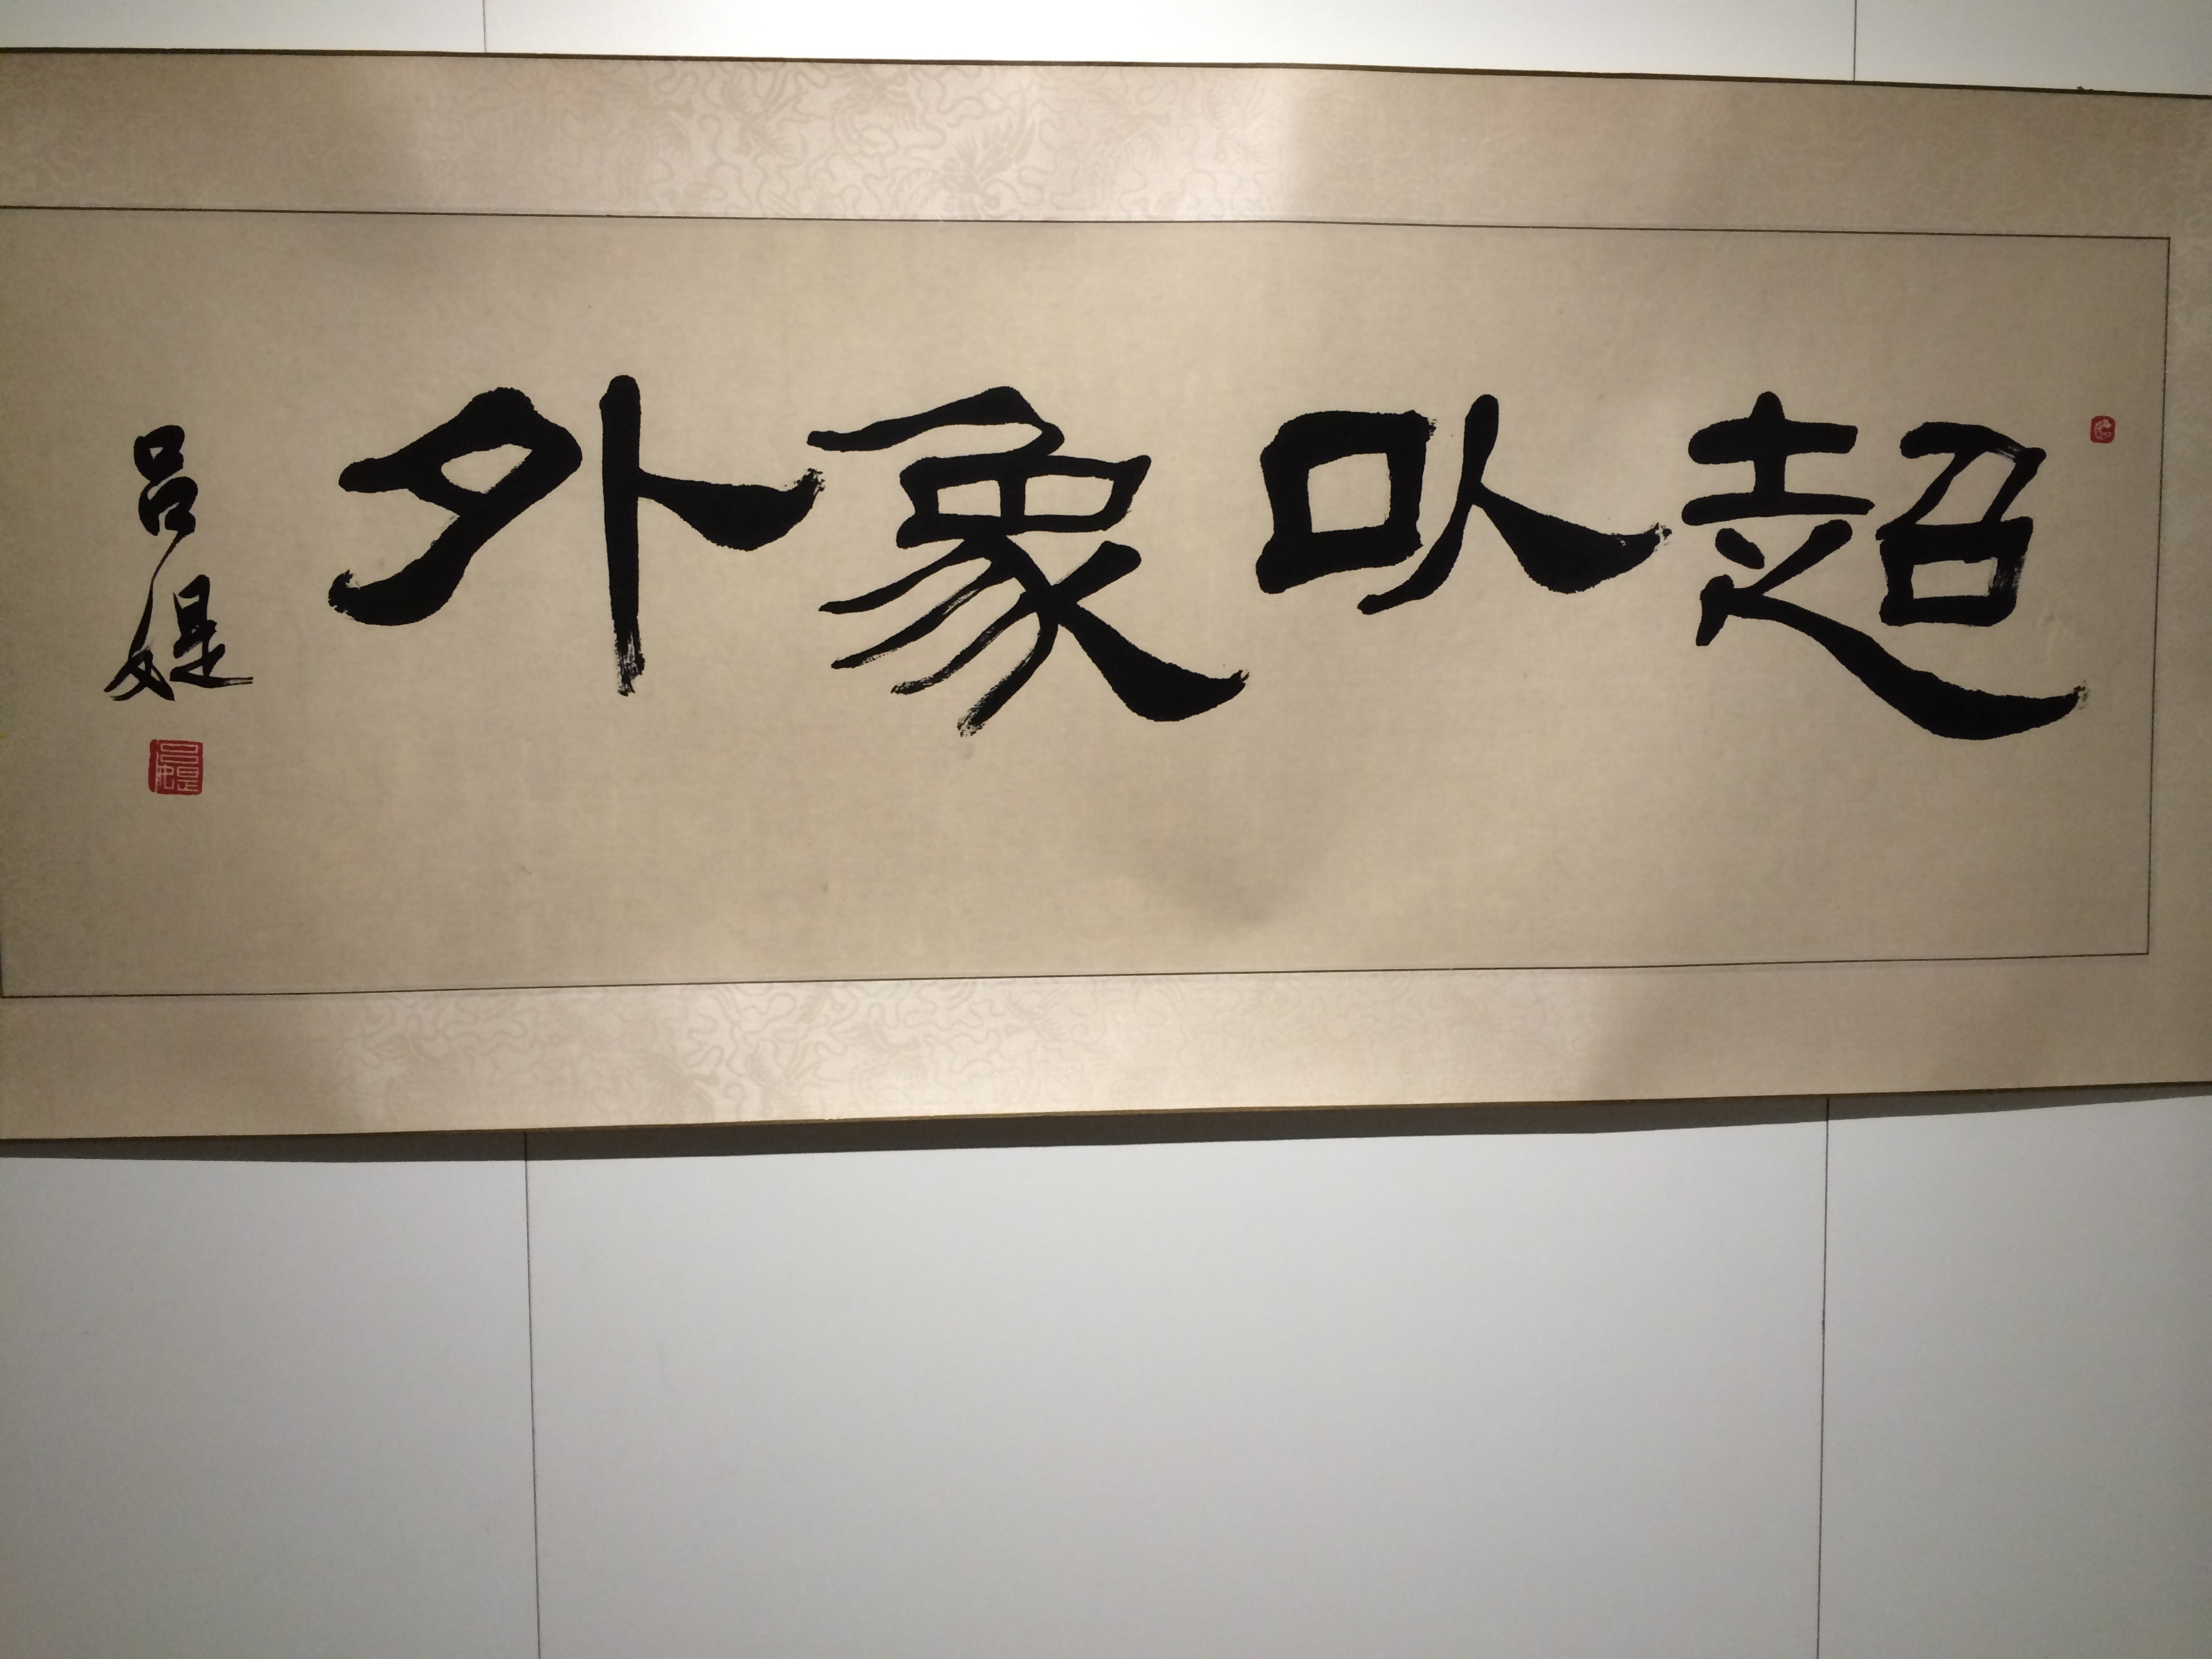 超以象外
吕媞
吕媞